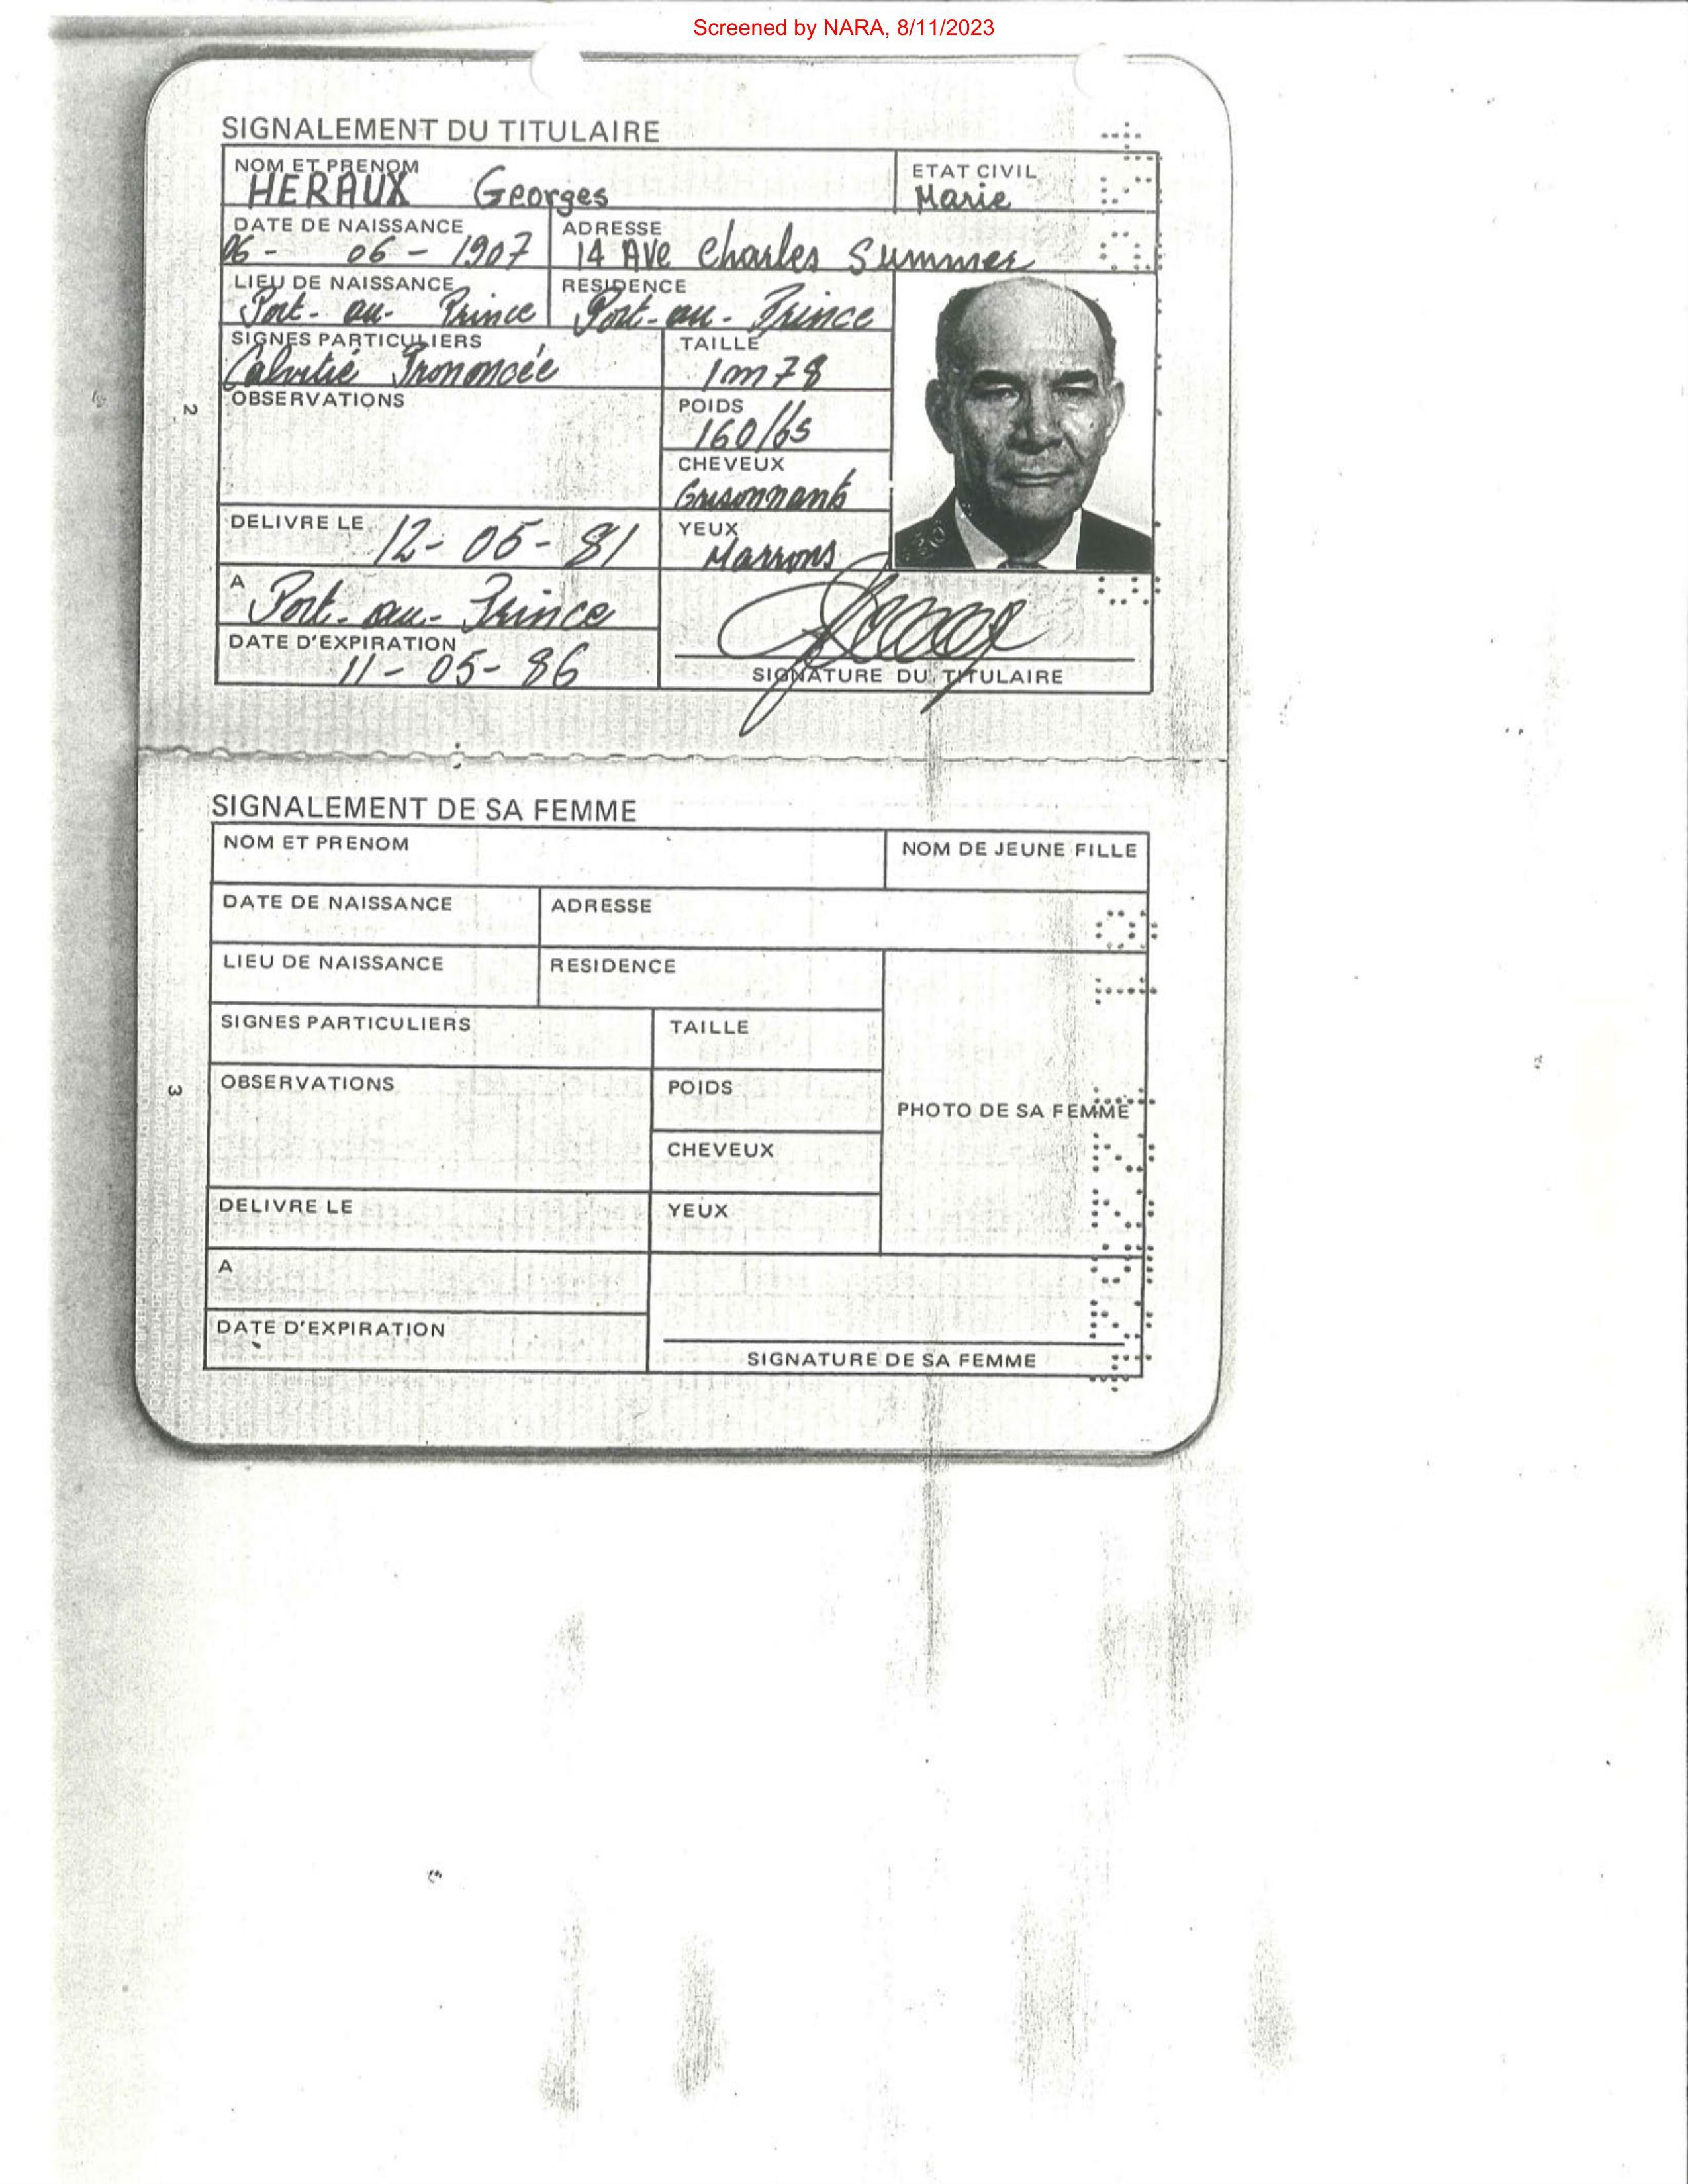 Screened by NARA, 8/11/2023
SIGNALEMENT DU TITULAIRE
NOM ET PRENOM
HERAUX Georges
ETAT CIVIL
Marie
DATE DE NAISSANCE
06- 06-1907
ADRESSE
14 AVE Charles Summer
LIEU DE NAISSANCE
Port-au-Prince
RESIDENCE
Port-au-Prince
SIGNES PARTICULIERS
Calvitié Prononcée
TAILLE
1m78
OBSERVATIONS
POIDS
160/65
CHEVEUX
Grisonnants
DELIVRE LE
12-05-81
YEUX
Marrons
A
Port-au-Prince
DATE D'EXPIRATION
11-05-86
SIGNATURE DU TITULAIRE
2
SIGNALEMENT DE SA FEMME
NOM ET PRENOM
NOM DE JEUNE FILLE
DATE DE NAISSANCE
ADRESSE
LIEU DE NAISSANCE
RESIDENCE
SIGNES PARTICULIERS
TAILLE
OBSERVATIONS
POIDS
PHOTO DE SA FEMME
CHEVEUX
DELIVRE LE
YEUX
A
DATE D'EXPIRATION
SIGNATURE DE SA FEMME
3